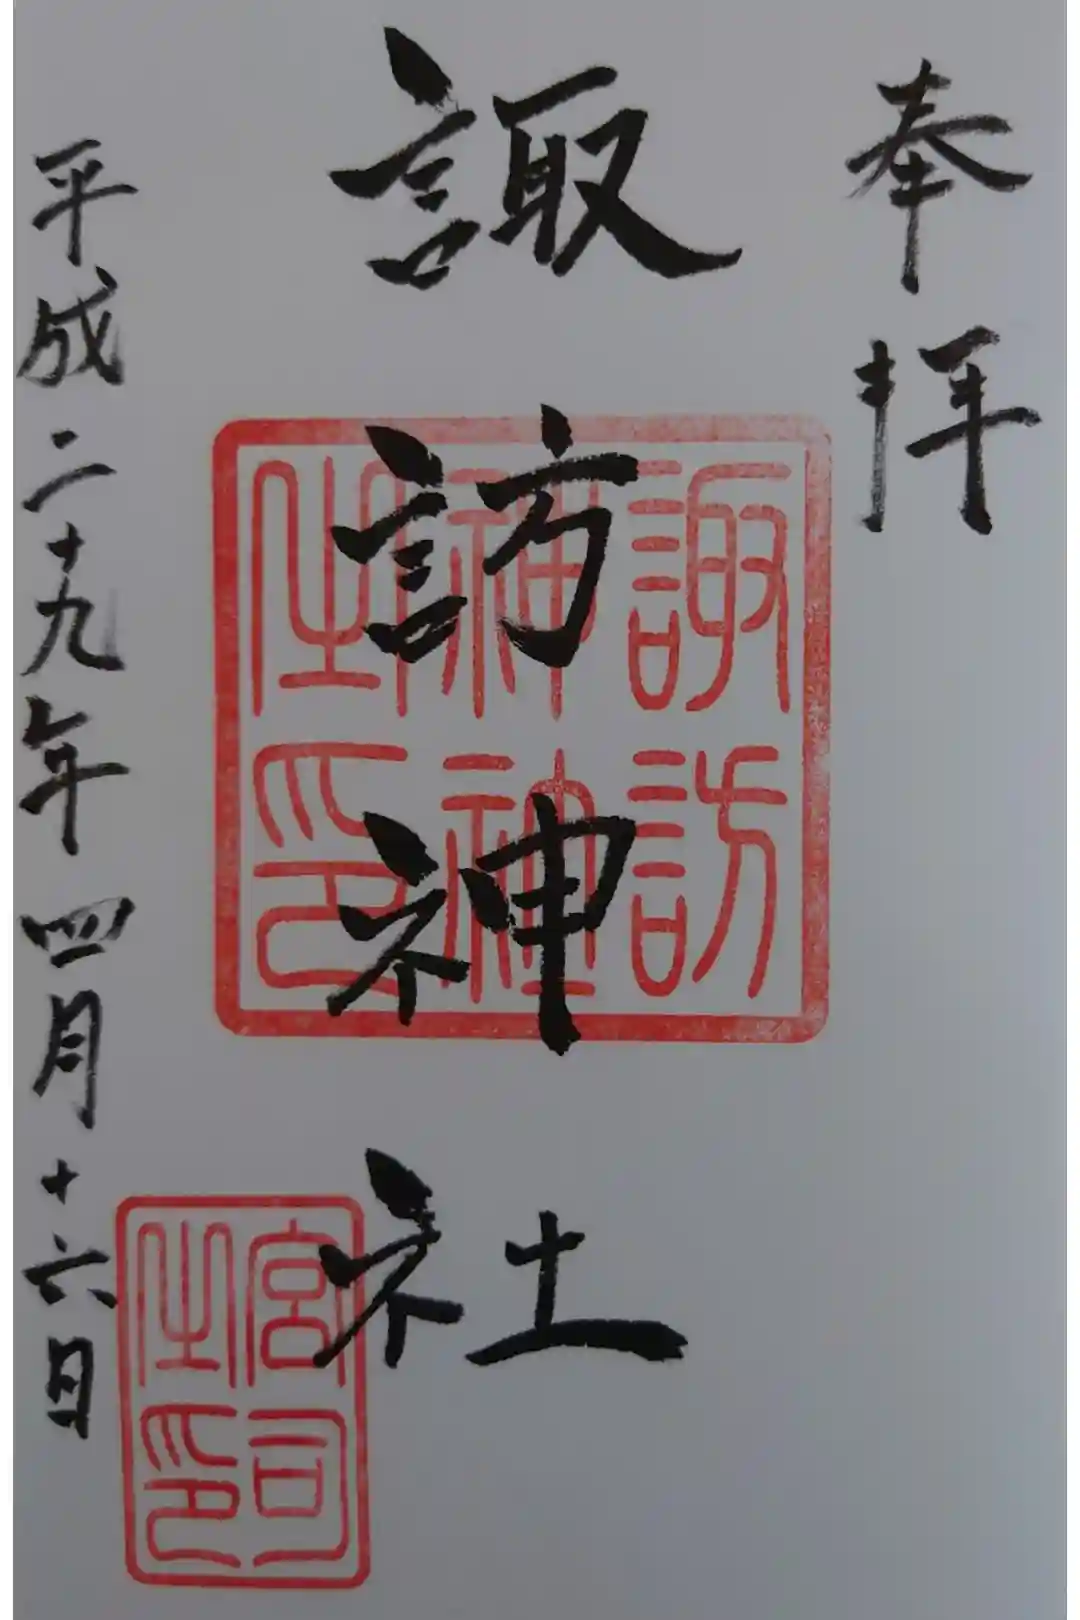 奉拝
諏訪神社
諏訪
神社
之印
宮司
之印
平成二十九年四月十六日